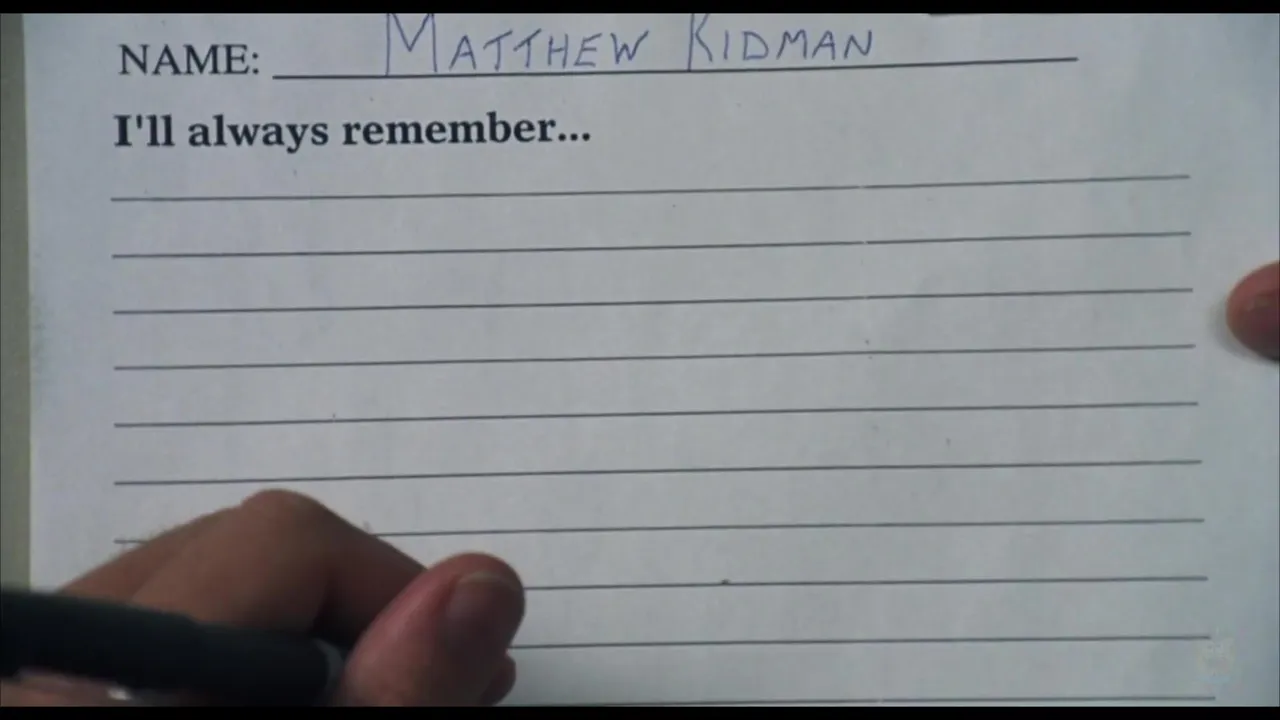 NAME: MATTHEW KIDMAN
I'll always remember...